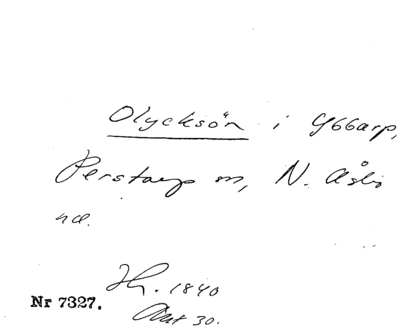 Olycksön i Ybbarp,
Perstorp sn, N. Åsbo
hd.
Hr. 1840
Akt 30.
Nr 7327.